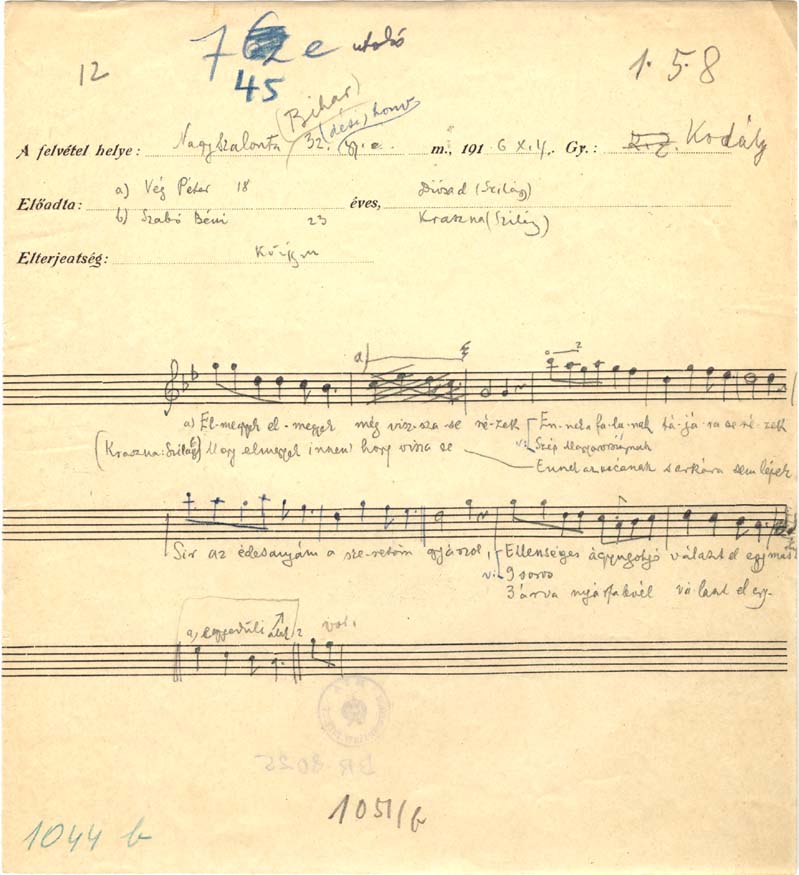 12
76 e utolsó
45
1.5.8
A felvétel helye: Nagyszalonta (Bihar) 32. gy. e. (dési) honv m., 1916 X.14. Gy.: Kodály
Előadta: a) Vég Péter 18 éves, Diósad (Szilágy)
b) Szabó Béni 23 Kraszna (Szilágy)
Elterjeatség:
a)
a) El-megyek el-megyek még visz-sza se né-zek En-nek a fa-lu-nak tá-já-ra se né-zek
(Kraszna: Szilágy) Úgy elmegyek innen hogy vissza se v: Szép Magyarországnak
Ennek az ucának sarkára sem lépek
Sir az édesanyám a sze-retőm gyászol, Ellenséges ágyugolyó választ el egymás
v: 9 soros
3 árva nyárfalevél választ el egy-
a) egyedüli alak 2 var.
BR-8025
1051/b
1044 b